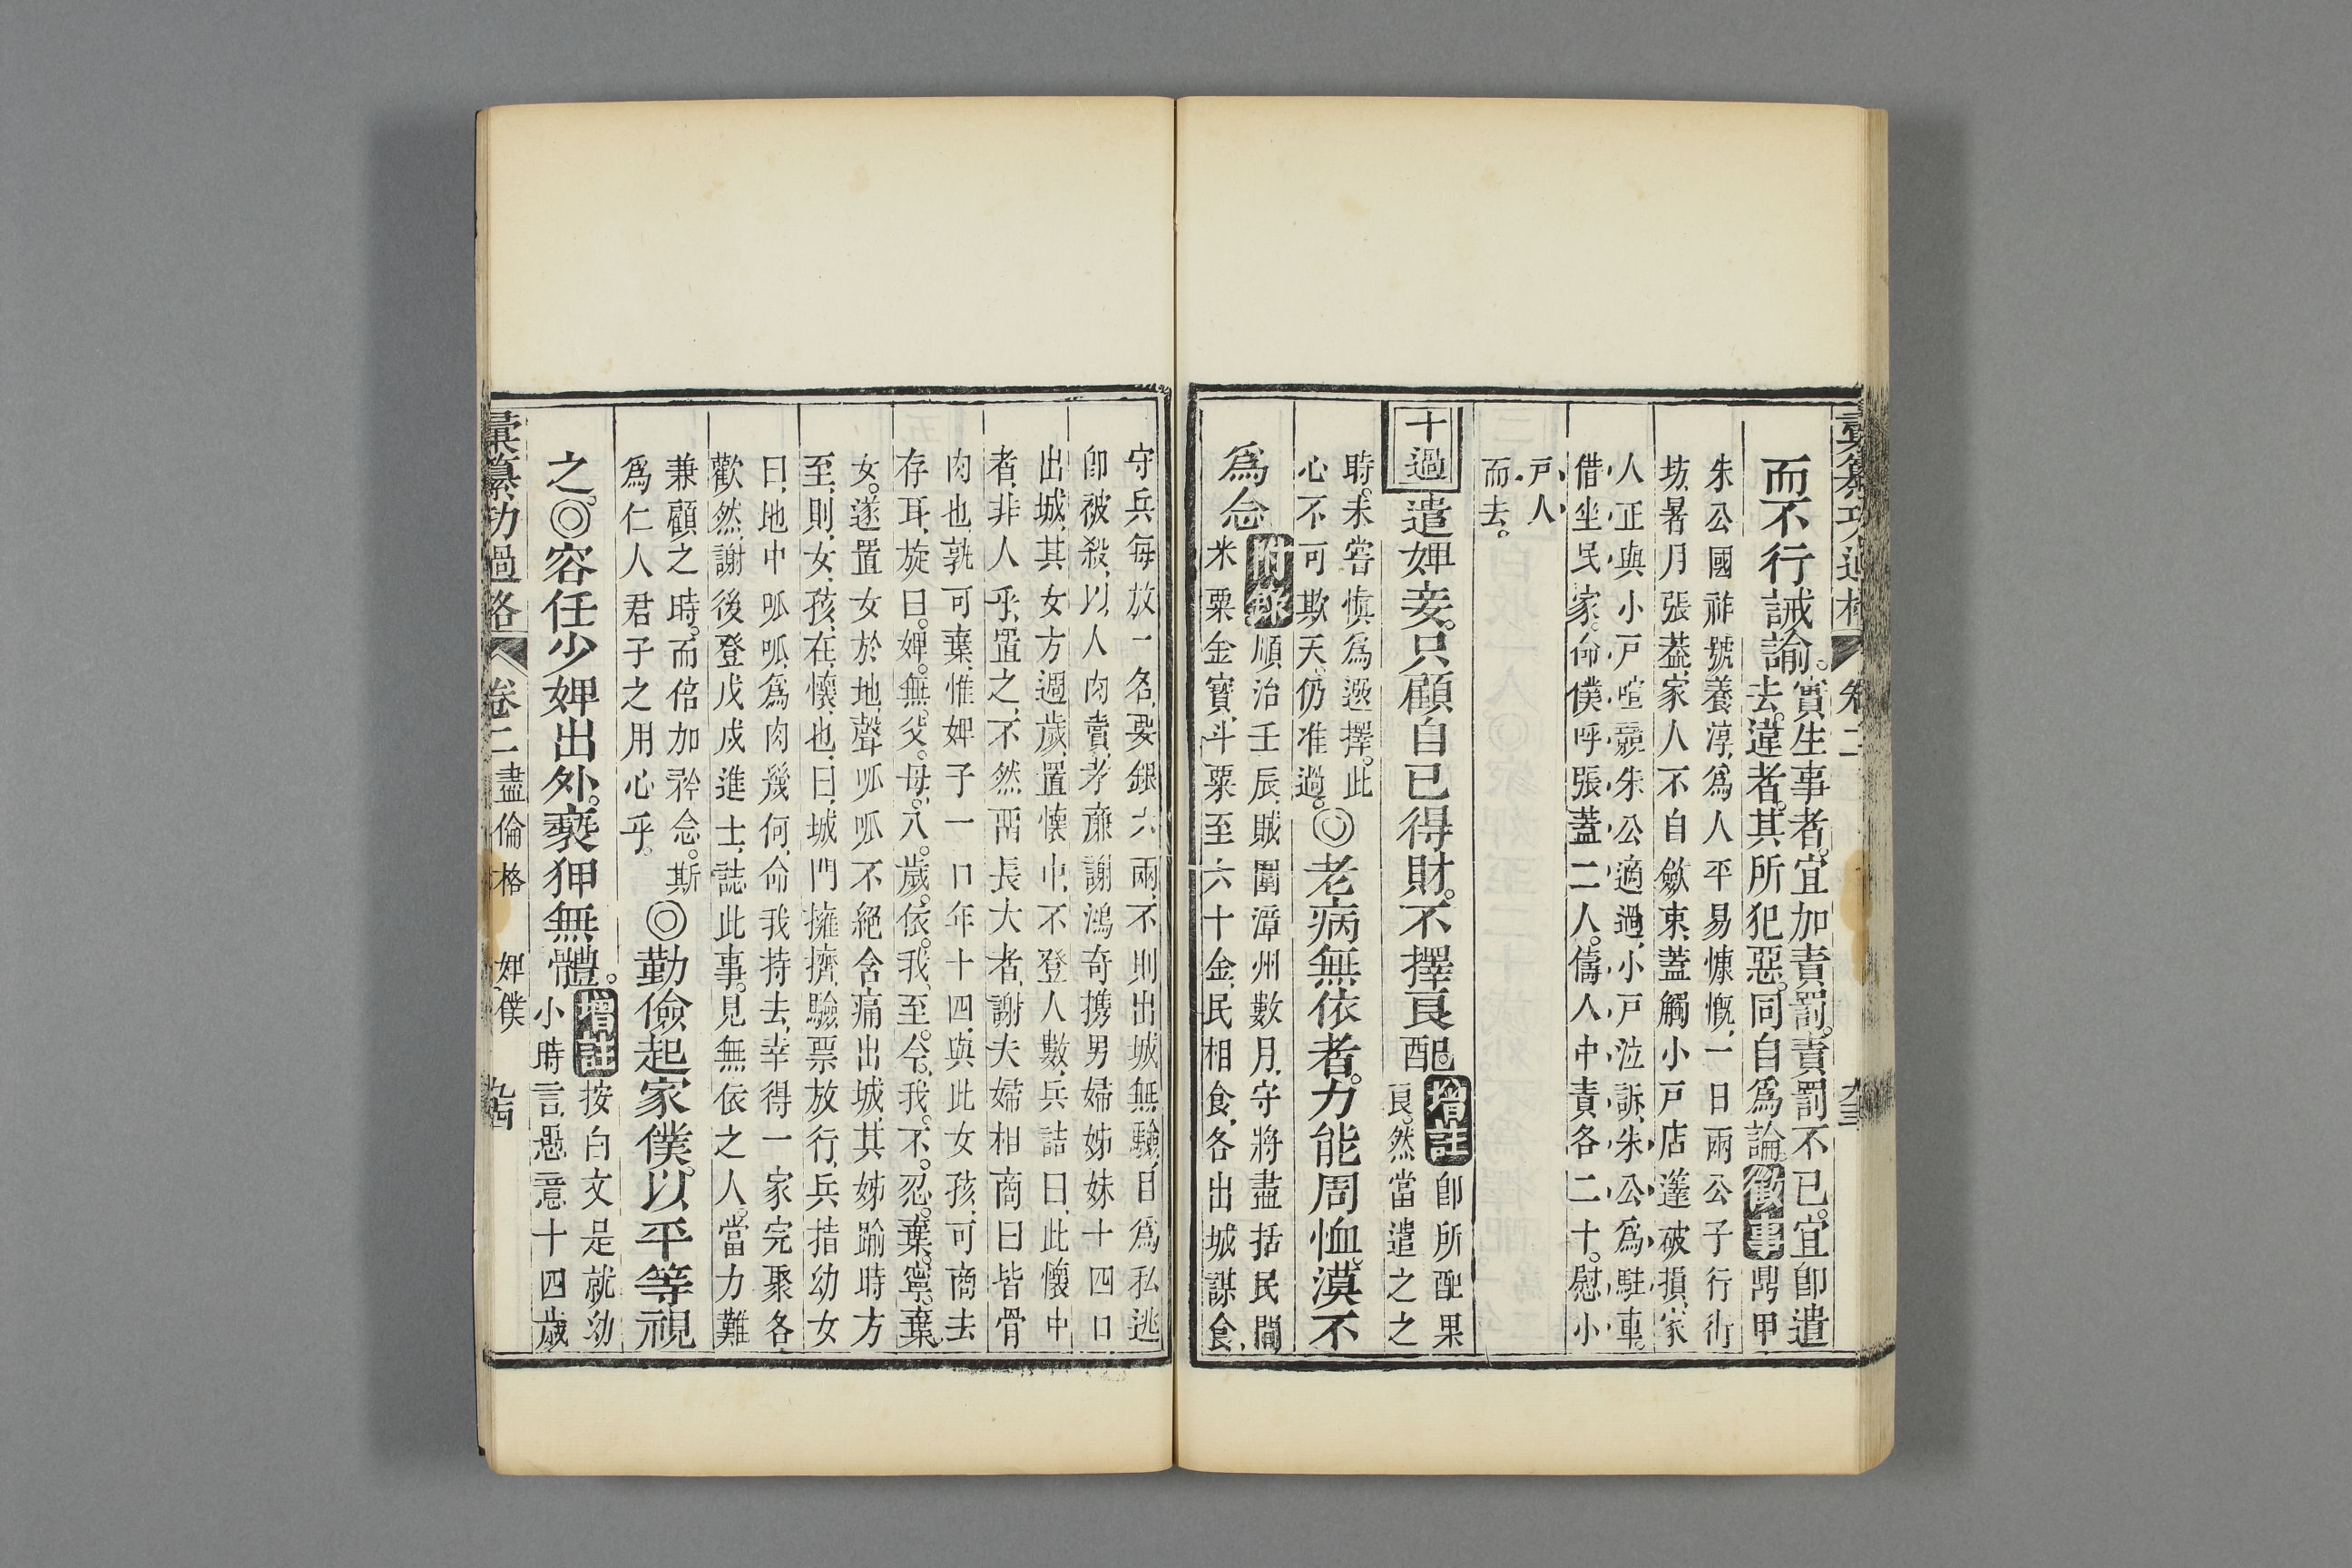 彙纂功過格 卷二 九三
而不行誡諭。實生事者。宜加責罰。責罰不已。宜卽遣
去。違者。其所犯惡。同自爲論。徵事鼎甲
朱公國祚號養淳、爲人平易慷慨、一日兩公子行街
坊、暑月張蓋、家人不自斂束、蓋觸小戸店篷破損、家
人正與小戸喧競、朱公適過、小戸泣訴、朱公爲駐車。
借坐民家。命僕呼張蓋二人。儔人中責各二十。慰小
戸人
而去。
十過 遣婢妾。只顧自己得財。不擇良配。增註卽所配果
良。然當遣之之
時。未嘗愼爲選擇。此
心不可欺天。仍准過。◎老病無依者。力能周恤。漠不
爲念附錄順治壬辰、賊圍漳州數月、守將盡括民間
米粟金寶、斗粟至六十金、民相食、各出城謀食、
守兵每放一名、要銀六兩、不則出城無驗、目爲私逃
卽被殺、以人肉賣、孝廉謝鴻奇携男婦姊妹十四口
出城、其女方週歲、置懷中、不登人數、兵詰曰、此懷中
者、非人乎、置之、不然兩長大者、謝夫婦相商曰皆骨
肉也、孰可棄、惟婢子一口年十四、與此女孩、可商去
存耳、旋曰。婢。無。父。母。八。歲。依。我。至。今。我。不。忍。棄。寧。棄。
女。遂置女於地、聲呱呱不絕、含痛出城、其姊踰時方
至、則、女、孩、在、懷、也、曰、城門擁擠、驗票放行、兵指幼女
曰、地中呱呱、爲肉幾何、命我持去、幸得一家完聚、各
歡然、謝後登戊戌進士、誌此事。見無依之人。當力難
兼顧之時。而倍加矜念。斯
爲仁人君子之用心乎。◎勤儉起家僕。以平等視
之。◎容任少婢出外。褻狎無體。增註按白文是就幼
小時言、愚意十四歲
彙纂功過格 卷二 盡倫格 婢僕 九四